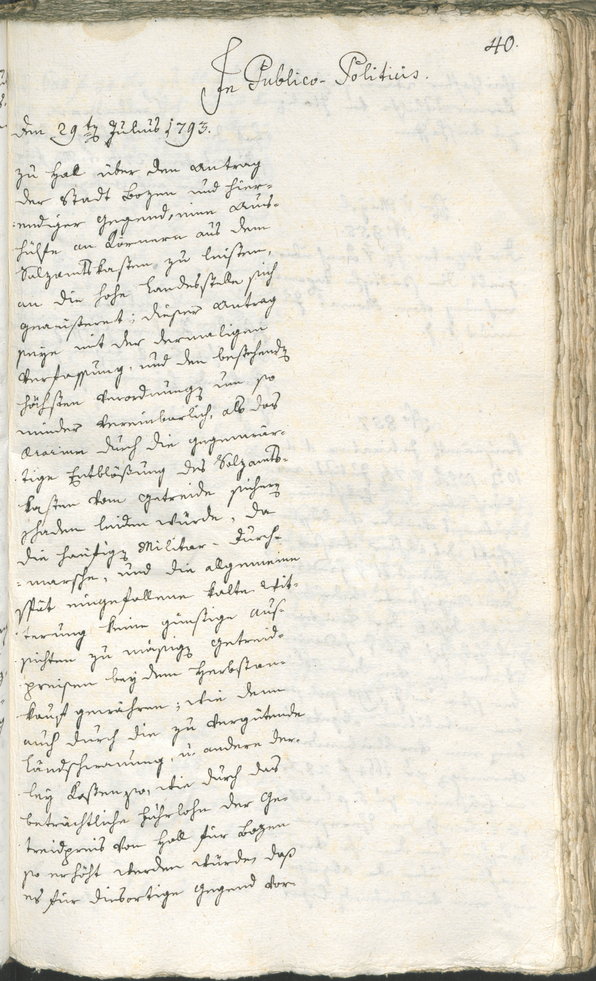 40.
In Publico-Politicis.
Den 29ten Julius 1793.
zu Hall über den Antrag
der Stadt Bozen und hier-
endiger Gegend, eine Aus-
hülfe an Körnern aus dem
Salzamtskasten, zu leisten,
an die hohe Landesstelle sich
geäusseret; dieser Antrag
seye mit der dermaligen
Verfassung, und den bestehend
höchsten Verordnungen um so
minder Vereinbarlich, als das
Ararium durch die gegenwär-
tige Entblößung des Salzamts-
kasten vom Getreide sichern
schaden leiden würde, da
die häufigen Militar-Durch-
märsche, und die allgemeine
spät eingefallene kalte Wit-
terung keine günstige Aus-
sichten zu mäßigen Getreid-
preisen bey dem Herbstan-
kauf gewähren; wie denn
auch durch die zu Vergütende
Landschrannung, u: andere der-
ley Kösten so, wie durch das
beträchtliche Fuhrlohn der Ge-
treidpreis von Hall für Bozen
so erhöht werden würde, daß
es für diesortige Gegend vor-